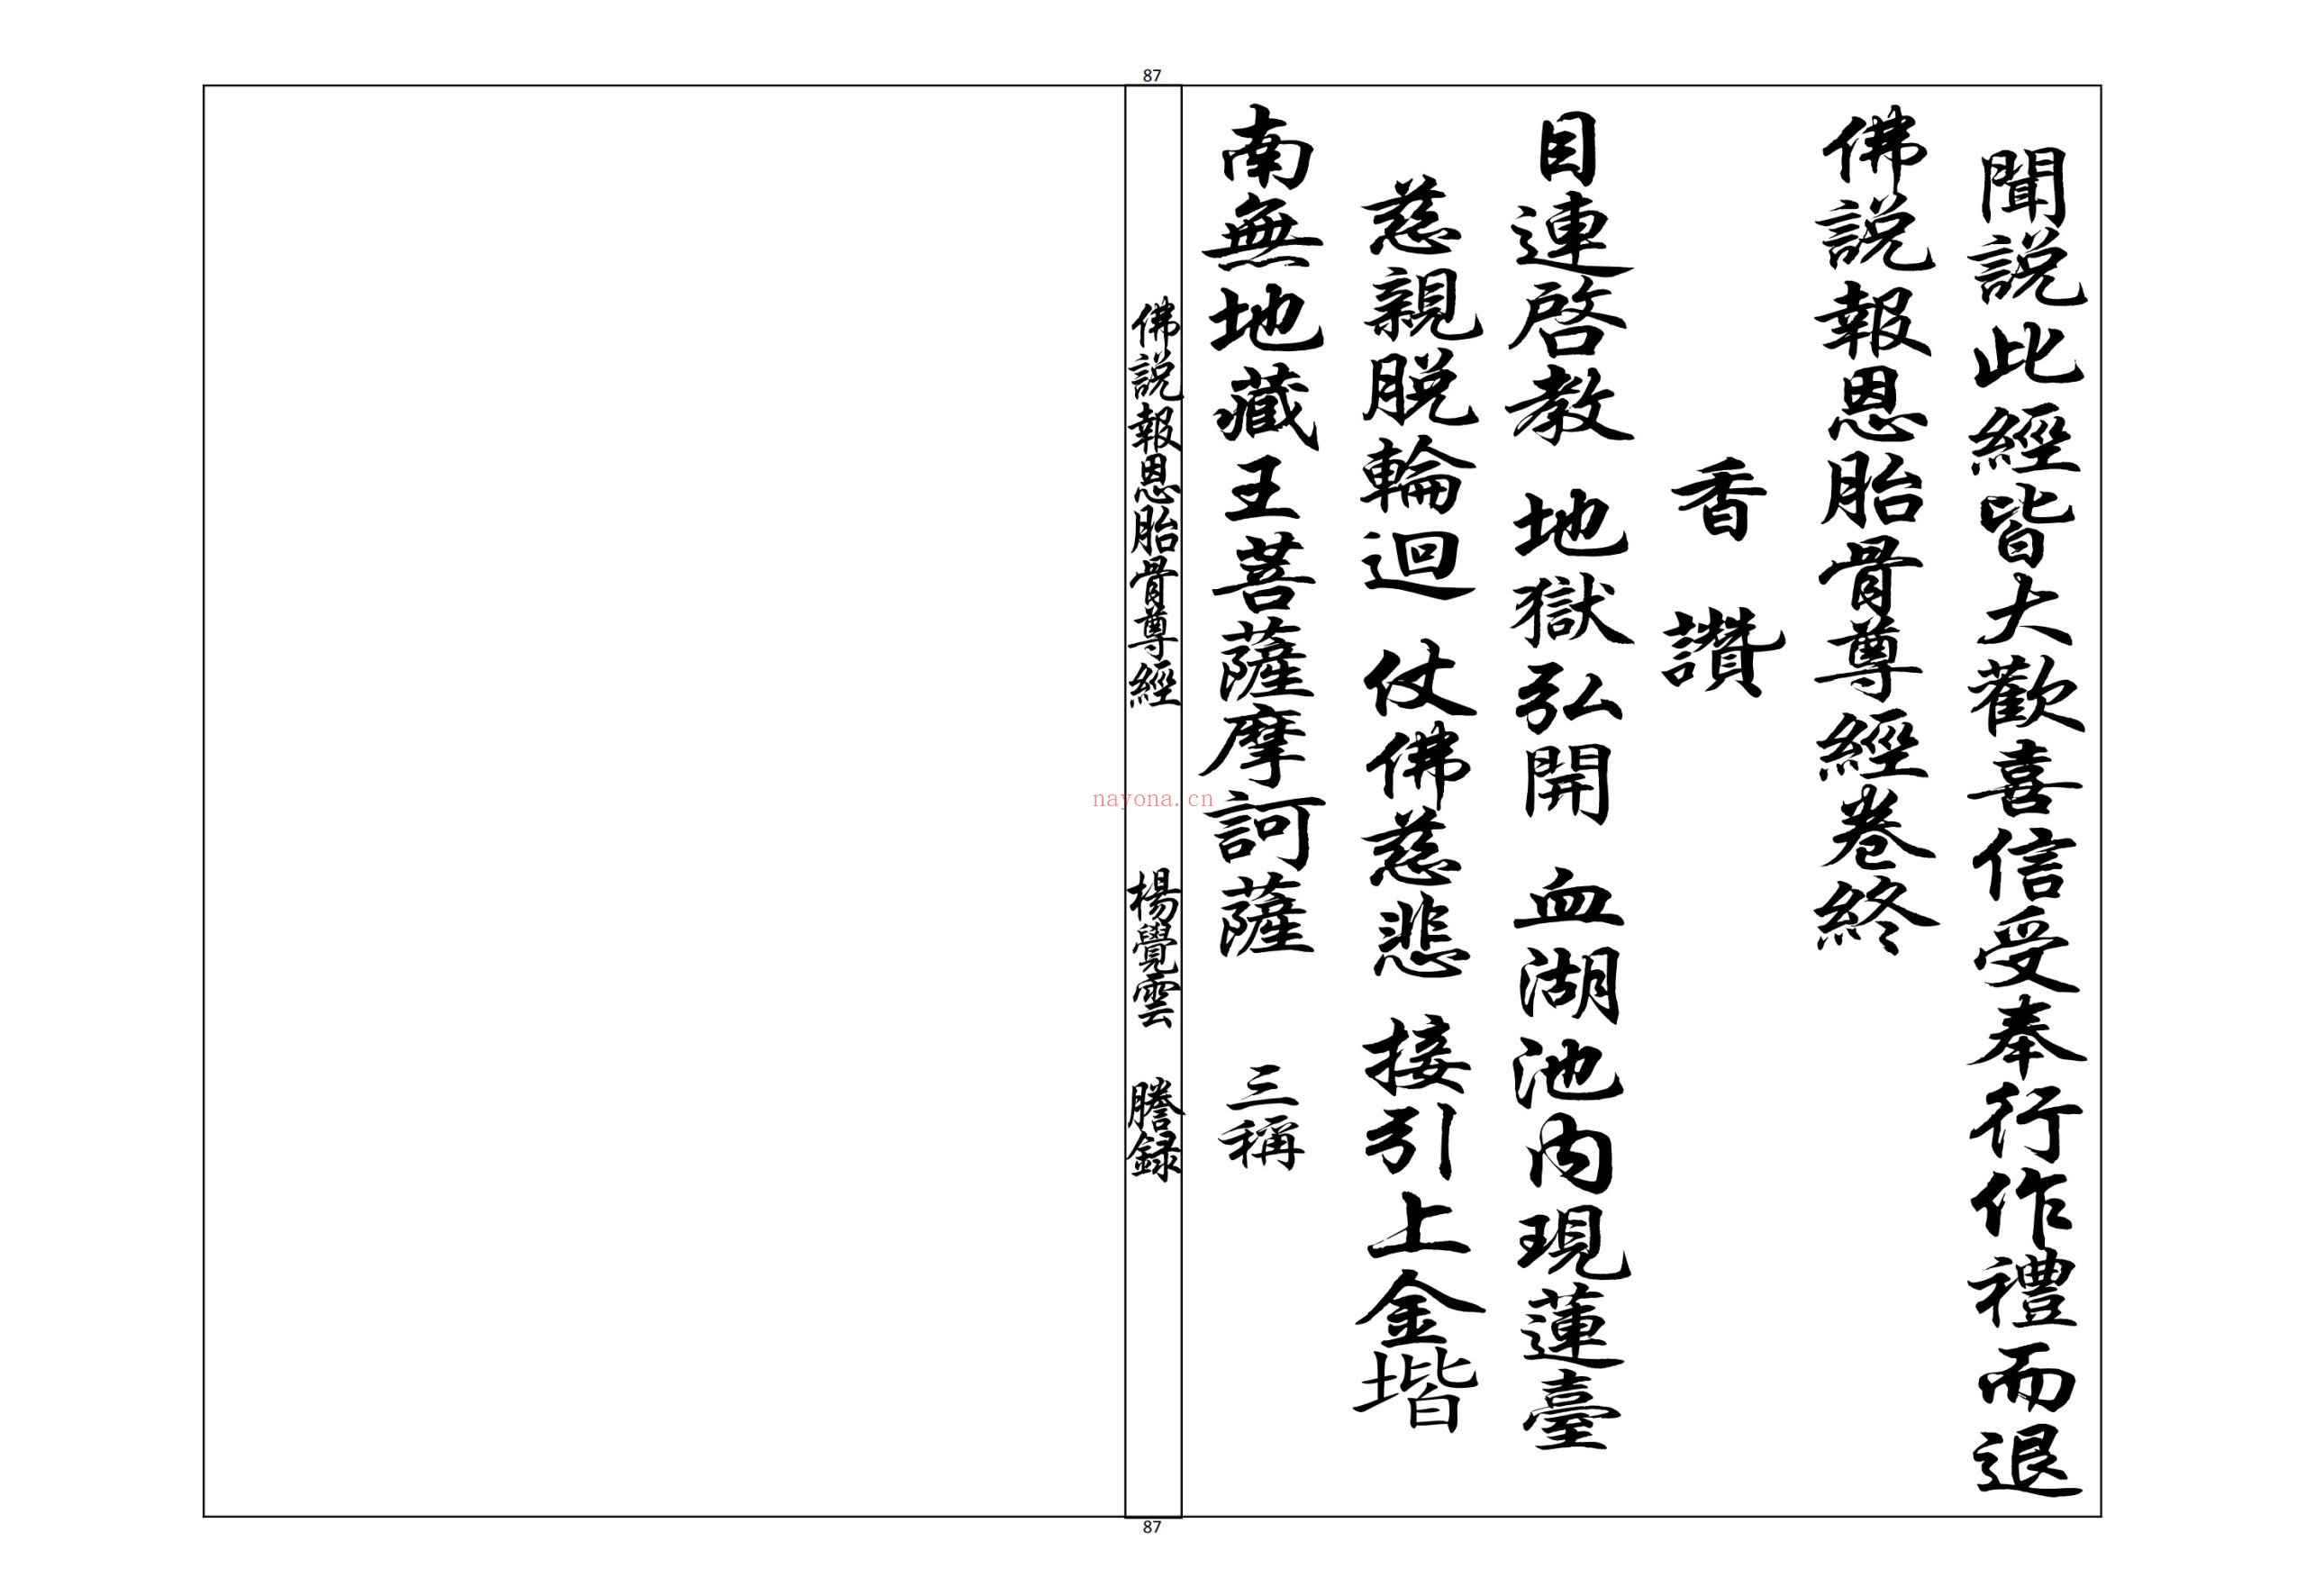 87
聞説此經皆大歡喜信受奉行作禮而退
佛説報恩胎骨尊經卷終
香 讚
目連啓教 地獄弘開 血湖池內現蓮臺
慈親脱輪迴 仗佛慈悲 接引上金堦
南無地藏王菩薩摩訶薩 三稱
佛説報恩胎骨尊經 楊覺雲 謄録
nayona.cn
87